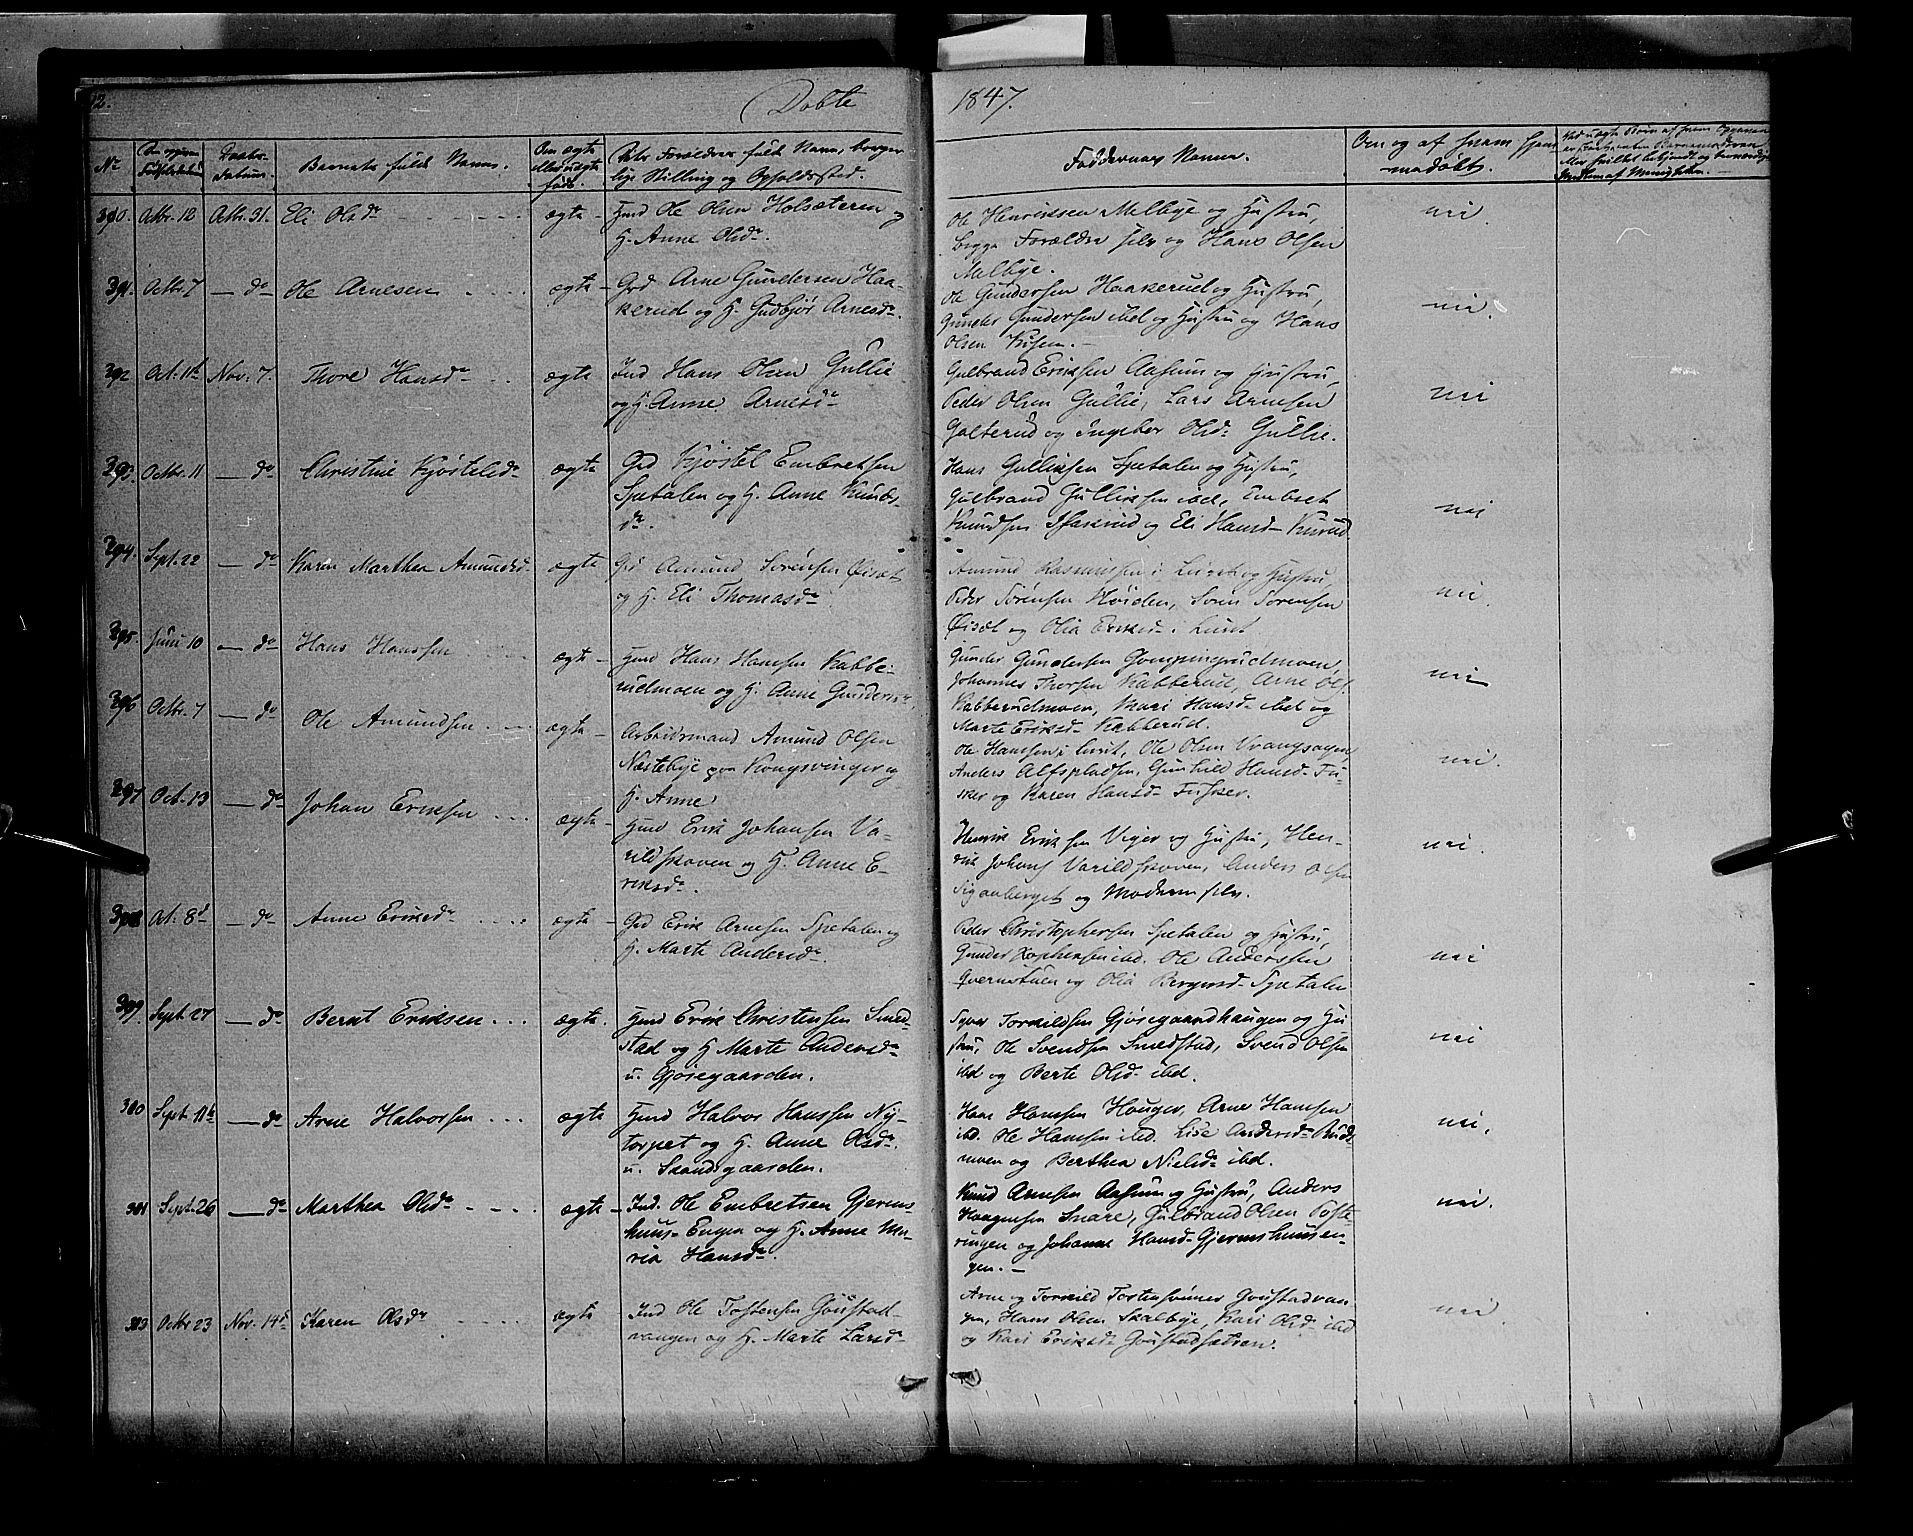 Døbte 1847.
No
Daabs-
datum.
Barnets fulde Navn.
Om ægte
eller uægte
født.
Dets Forældres fulde Navn, borger-
lige Stilling og Opholdssted.
Faddernes Navne.
Om og af hvem hjem-
medøbt.
290. Octbr. 12 Octbr. 31. Eli Olsdr ægte Hmd Ole Olsen Holsæteren og
H. Anne Olsdr.
Ole Henriksen Melbye og Hustru,
begge Forældre selv og Hans Olsen
Melbye.
nei.
291. Octbr. 7 — do Ole Arnesen ægte Grd Arne Gundersen Haa-
kerud og H. Gudbjør Arnesdr.
Ole Gundersen Haakerud og Hustru,
Gunder Gundersen ibd og Hustru og Hans
Olsen
nei.
292 Oct. 11te Nov. 7. Thore Hansdr ægte Ind Hans Olsen Gullie
og H. Anne Arnesdr
Gulbrand Eriksen Aasum og Hustru,
Peder Olsen Gullie, Lars Arnesen
Galterud og Ingebor Olsdr Gullie.
nei
293. Octbr. 11 — do Christine Kjøstelsdr ægte Grd Kjøstel Embretsen
Spetalen og H. Anne Knuds-
dr.
Hans Gulliksen Spetalen og Hustru,
Gulbrand Gulliksen ibd, Embret
Knudsen og Eli Hansd
nei
294. Sept. 22 — do Karen Marthea Amundsd ægte Grd Amund Sørensen Øisæt
og H. Eli Thomasdr
Amund Rasmussen i Lund og Hustru,
Peder Sørensen Høiden, Søren Sørensen
Øisæt og Olia Eriksd i Lund.
nei.
295. Juni 10 — do Hans Hanssen ægte Hmd Hans Hansen Kabbe-
rudmoen og H. Anne Gundersdr.
Gunder Gundersen
Johannes Thorsen Kabberud, Arne Ols.
Kabberudmoen, Kari Hansd ibd og
Marte Eriksd Kabberud.
nei
296 Octbr. 7 — do Ole Amundsen ægte Arbeidsmand Amund Olsen
Næstebye paa Kongsvinger og
H. Anne
Ole Hansen i Lund, Ole Olsen Vrangsagen,
Anders Alfspladsen, Gunhild Hansd Fu-
sker og Karen Hansd Fusker.
nei.
297 Oct. 13 — do Johan Eriksen ægte Hmd Erik Johansen Va-
rildskoven og H. Anne E-
riksdr.
Henrik Eriksen Viger og Hustru, Hen-
rik Johans Varildskoven, Anders Olsen
og Moderen selv.
nei.
298 Oct. 8d — do Anne Eriksdr ægte Grd Erik Arnesen Spetalen og
H. Marte Andersdr.
Peder Christophersen Spetalen og Hustru,
Gunder Xophersen ibd. Ole Anderssen
Qvernstuen og Olia Bergersd Spetalen
nei
299. Sept. 27 — do Bernt Eriksen ægte. Hmd Erik Christensen Smed-
stad og H Marte Andersdr
u. Gjøsegaarden.
Syver Torkildsen Gjøsegaardhaugen og Hu-
stru, Ole Svendsen Smedstad, Svend Olsen
ibd og Berte Olsd ibd.
nei
300 Sept. 11te — do Arne Halvorsen ægte Hmd Halvor Hanssen Ny-
torpet og H. Anne Olsdr.
u. Skandsgaarden.
Hans Hansen Houger, Arne Hansen
ibd. Ole Hansen ibd. Lise Andersd Rud-
moen og Berthea Nielsdr ibd.
nei.
301 Sept. 26 — do Marthea Olsdr ægte Ind. Ole Embretsen Gjerms-
huus-Engen og H. Anne Ma-
ria Hansdr.
Knud Arnesen Aasum og Hustru, Anders
Haagensen Snare, Gulbrand Olsen Tøste-
ringen og Johanne Hansd Gjermshuusen-
gen.—
nei.
303 Octbr 23 Nov. 14d Karen Olsdr ægte Ind Ole Tostensen Goustad-
vangen og H. Marte Larsdr
Arne og Torkild Tostensønner Goustadvan-
gen, Hans Olsen Skalbye, Kari Olsd ibd
og Kari Eriksd Goustadsætren.
nei.